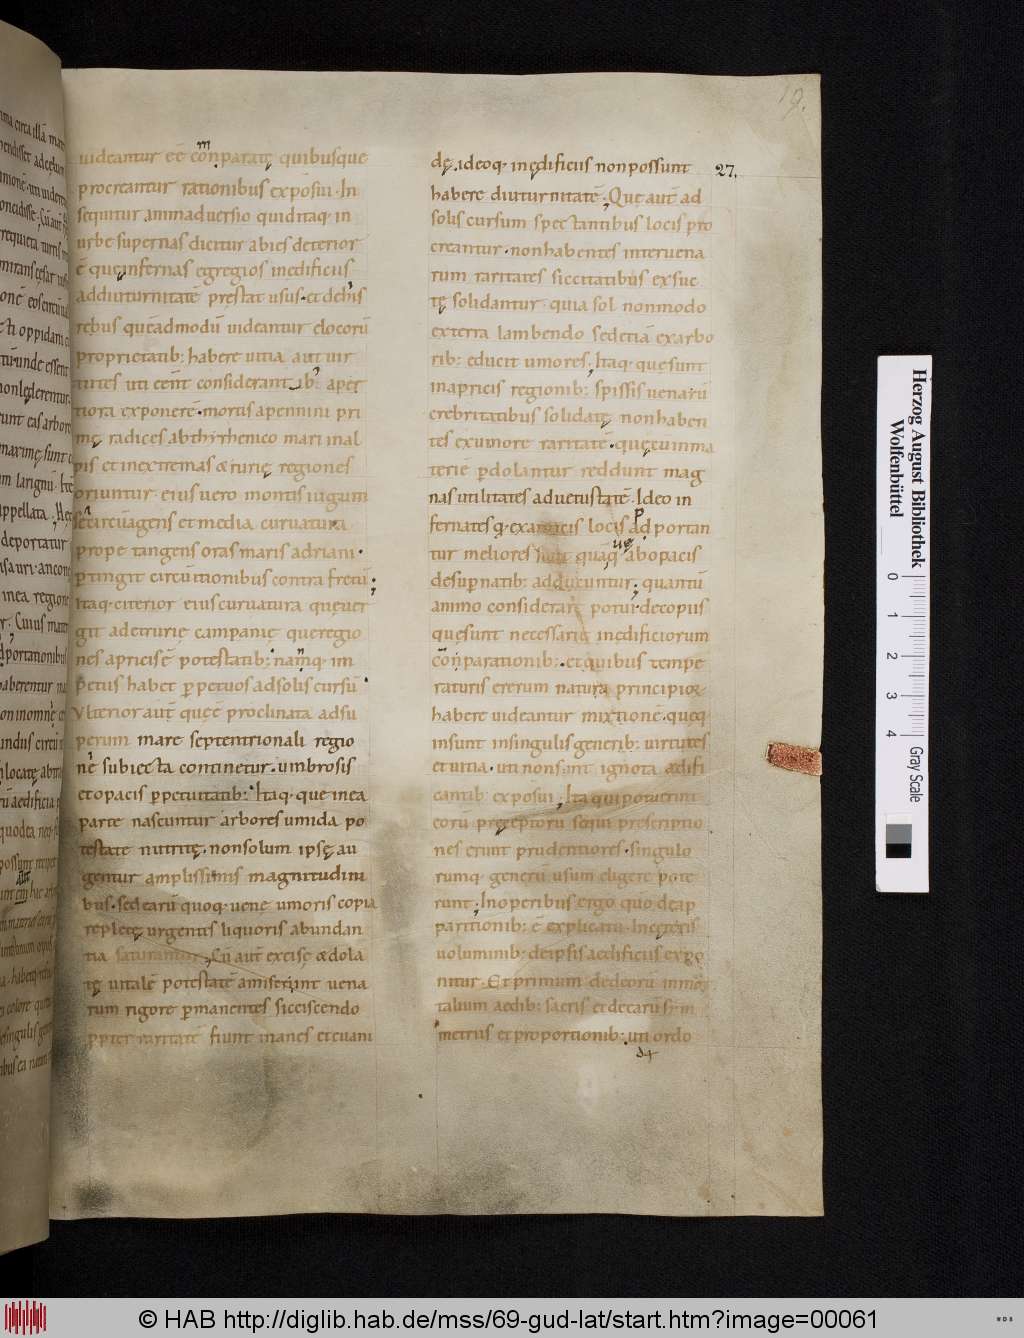 19.
uideantur eē conparatę quibusque
procreantur rationibus exposui. In
sequitur animaduersio quid itaq. in
urbe supernas dicitur abies deterior
ē que infernas egregios inedificiis
addiuturnitatē prestat usus. et de his
rebus queadmodū uideantur elocorū
proprietatib: habere uitia aut uir
tutes uti eēnt considerantib: aper
tiora exponerē. montis apennini pri
mę radices ab thirrhenico mari in al
pis et in extremas & rurię regiones
oriuntur. eius uero montis iugum
se circuagens et media curuatura
prope tangens oras maris adriani.
ptingit circuitionibus contra fretū;
Itaq. citerior eius curuatura que uer
git ad etrurie campanię que regio
nes apricis ē potestatib: namq. im
petus habet ppetuos ad solis cursū.
Vlterior aut quę ē proclinata ad su
perum mare septentrionali regio
ne subiecta continetur. umbrosis
et opacis ppetuitatib: Itaq. que in ea
parte nascuntur arbores umida po
testate nutritę. non solum ipsę au
gentur amplissimis magnitudini
bus. sed earū quoq. uenę umoris copia
repletę urgentis liquoris abundan
tia saturantur. Cū aut excisę & dola
tę uitalē potestatē amiserunt uena
rum rigore pmanentes siccescendo
ppter raritatē fiunt inanes et euani
dę. ideoq. in ędificiis non possunt
27.
habere diuturnitatē; Que aut ad
solis cursum spectantibus locis pro
creantur. non habentes interuena
rum raritates siccitatibus exsuc
tę solidantur. quia sol non modo
ex terra lambendo sed etiā ex arbo
rib: educit umores; Itaq. que sunt
in apricis regionib: spissis uenarū
crebritatibus solidatę non haben
tes ex umore raritatē. quę cum in ma
teriē pdolantur reddunt mag
nas utilitates ad uetustatē. Ideo in
fernates q. ex apricis locis adportan
tur meliores sunt quāq ab opacis
de supnatib: adducuntur; quantū
animo considerare potui de copiis
que sunt necessarię in ędificiorum
conparationib:. et quibus tempe
raturis e rerum natura principior
habere uideantur mixtionē. queq
insunt in singulis generib: uirtutes
et uitia. uti non sint ignota ædifi
cantib: exposui; Ita qui potuerint
eorū pręceptorū sequi prescriptio
nes erunt prudentiores. singulo
rumq. generū usum eligere pote
runt; In operibus ergo quo de ap
paritionib: ē explicata. In cęteris
uoluminib: de ipsis aedificiis expo
nitur. Et primum de deorū inmor
talium aedib: sacris et de earū sim
metriis et proportionib: uti ordo
Herzog August Bibliothek
Wolfenbüttel
0 1 2 3 4
Gray Scale
© HAB http://diglib.hab.de/mss/69-gud-lat/start.htm?image=00061